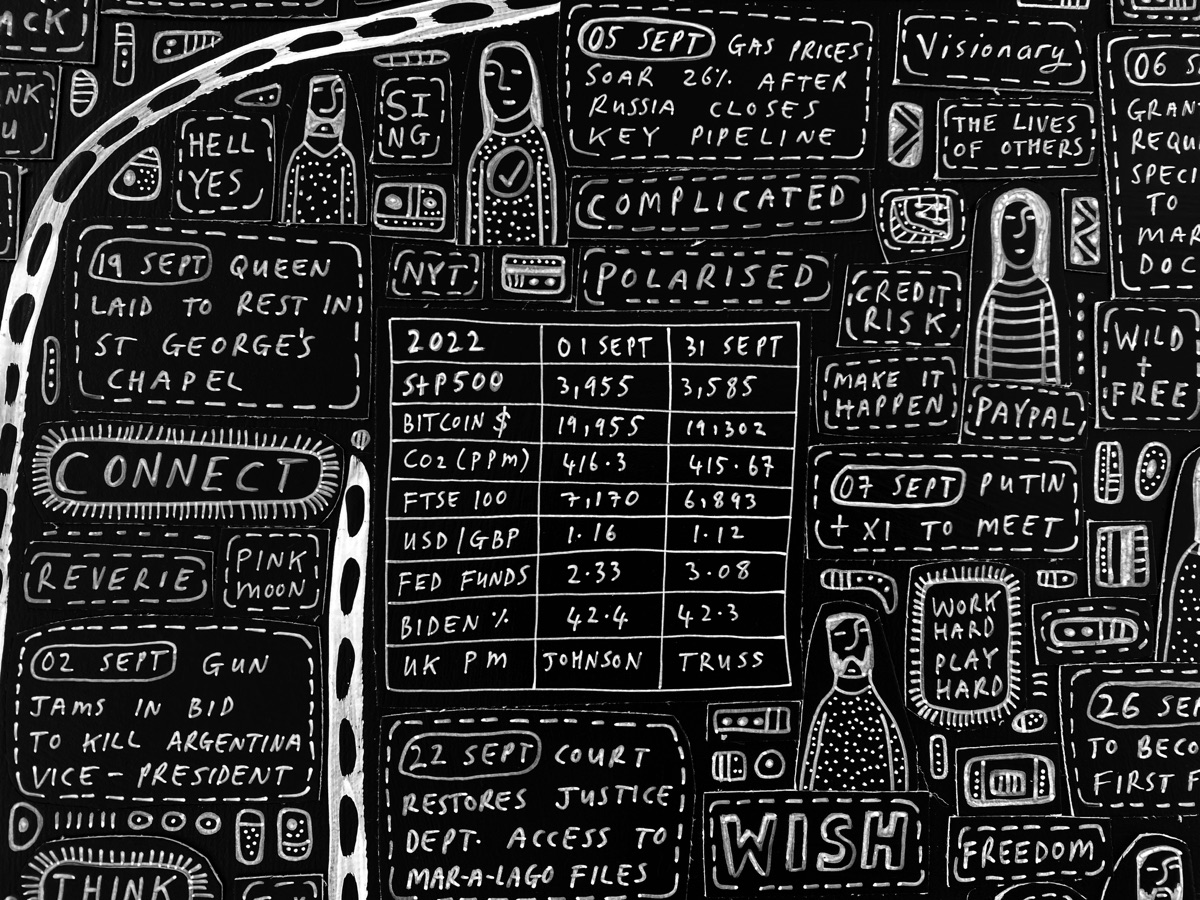 ACK
NK
U
HELL
YES
SI
NG
05 SEPT GAS PRICES
SOAR 26% AFTER
RUSSIA CLOSES
KEY PIPELINE
Visionary
THE LIVES
OF OTHERS
06 S
GRAN
REQU
SPECI
TO
MAR
DOC
COMPLICATED
19 SEPT QUEEN
LAID TO REST IN
ST GEORGE'S
CHAPEL
NYT
POLARISED
CREDIT
RISK
WILD
+
FREE
MAKE IT
HAPPEN
PAYPAL
2022 01 SEPT 31 SEPT
S+P500 3,955 3,585
BITCOIN $ 19,955 19,302
CO2 (PPM) 416.3 415.67
FTSE 100 7,170 6,893
USD/GBP 1.16 1.12
FED FUNDS 2.33 3.08
BIDEN % 42.4 42.3
UK PM JOHNSON TRUSS
CONNECT
07 SEPT PUTIN
+ XI TO MEET
REVERIE
PINK
MOON
WORK
HARD
PLAY
HARD
02 SEPT GUN
JAMS IN BID
TO KILL ARGENTINA
VICE-PRESIDENT
26 SE
TO BECO
FIRST F
22 SEPT COURT
RESTORES JUSTICE
DEPT. ACCESS TO
MAR-A-LAGO FILES
WISH
FREEDOM
THINK